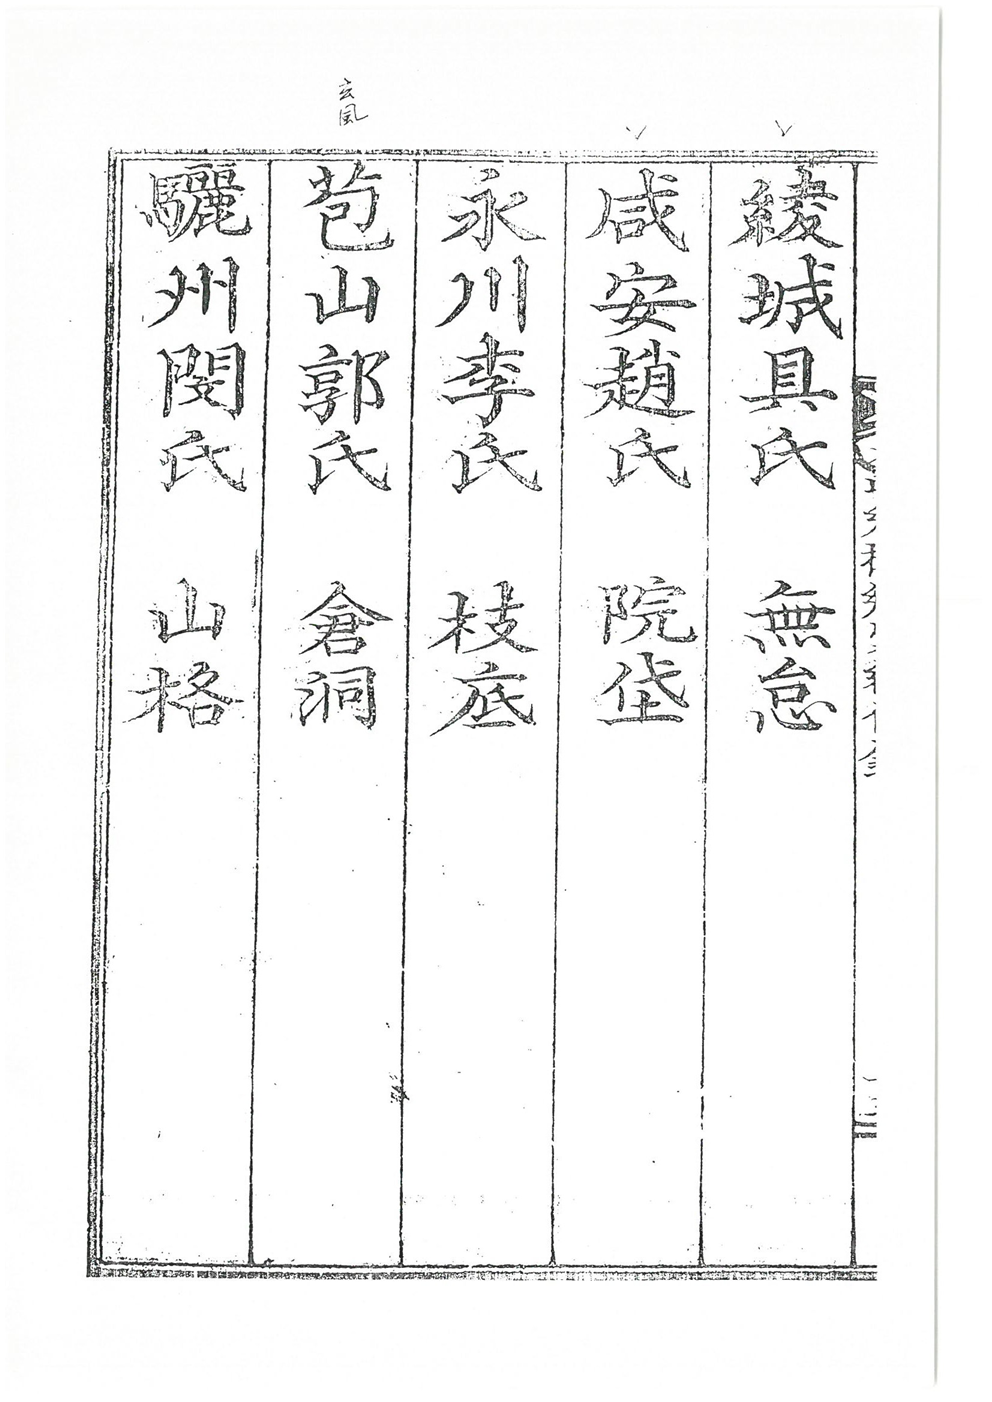 綾城具氏 無怠
咸安趙氏 院垈
永川李氏 枝底
玄風
苞山郭氏 倉洞
驪州閔氏 山格